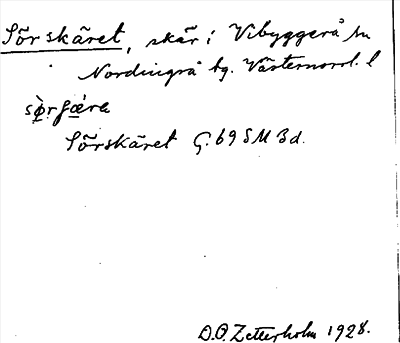 Sörskäret, skär i Vibyggerå sn
Nordingrå tg. Västernorrl. l
sø̀rʃæra
Sörskäret G. 69 SM Bd.
D.O. Zetterholm 1928.